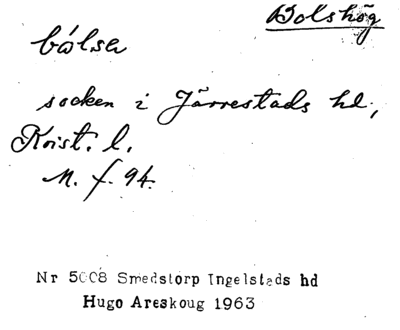 Bolshög
bólsa
socken i Järrestads hd,
Krist. l.
M. f. 94.
Nr 5008 Smedstorp Ingelstads hd
Hugo Areskoug 1963